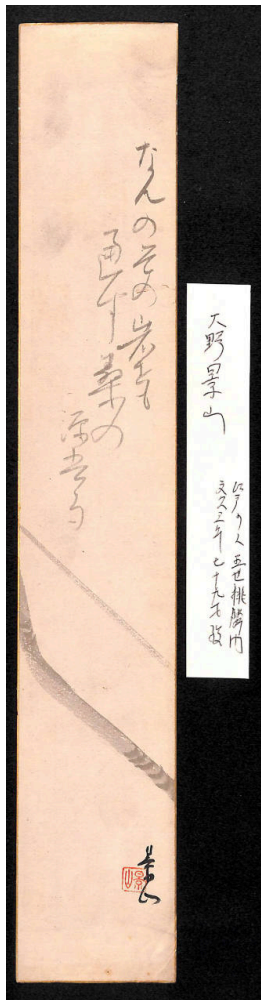 なんのその岩をも
通す桑の
源吾句
景山
大野景山
江戸の人 五世桃隣門
文久三年七十九才歿